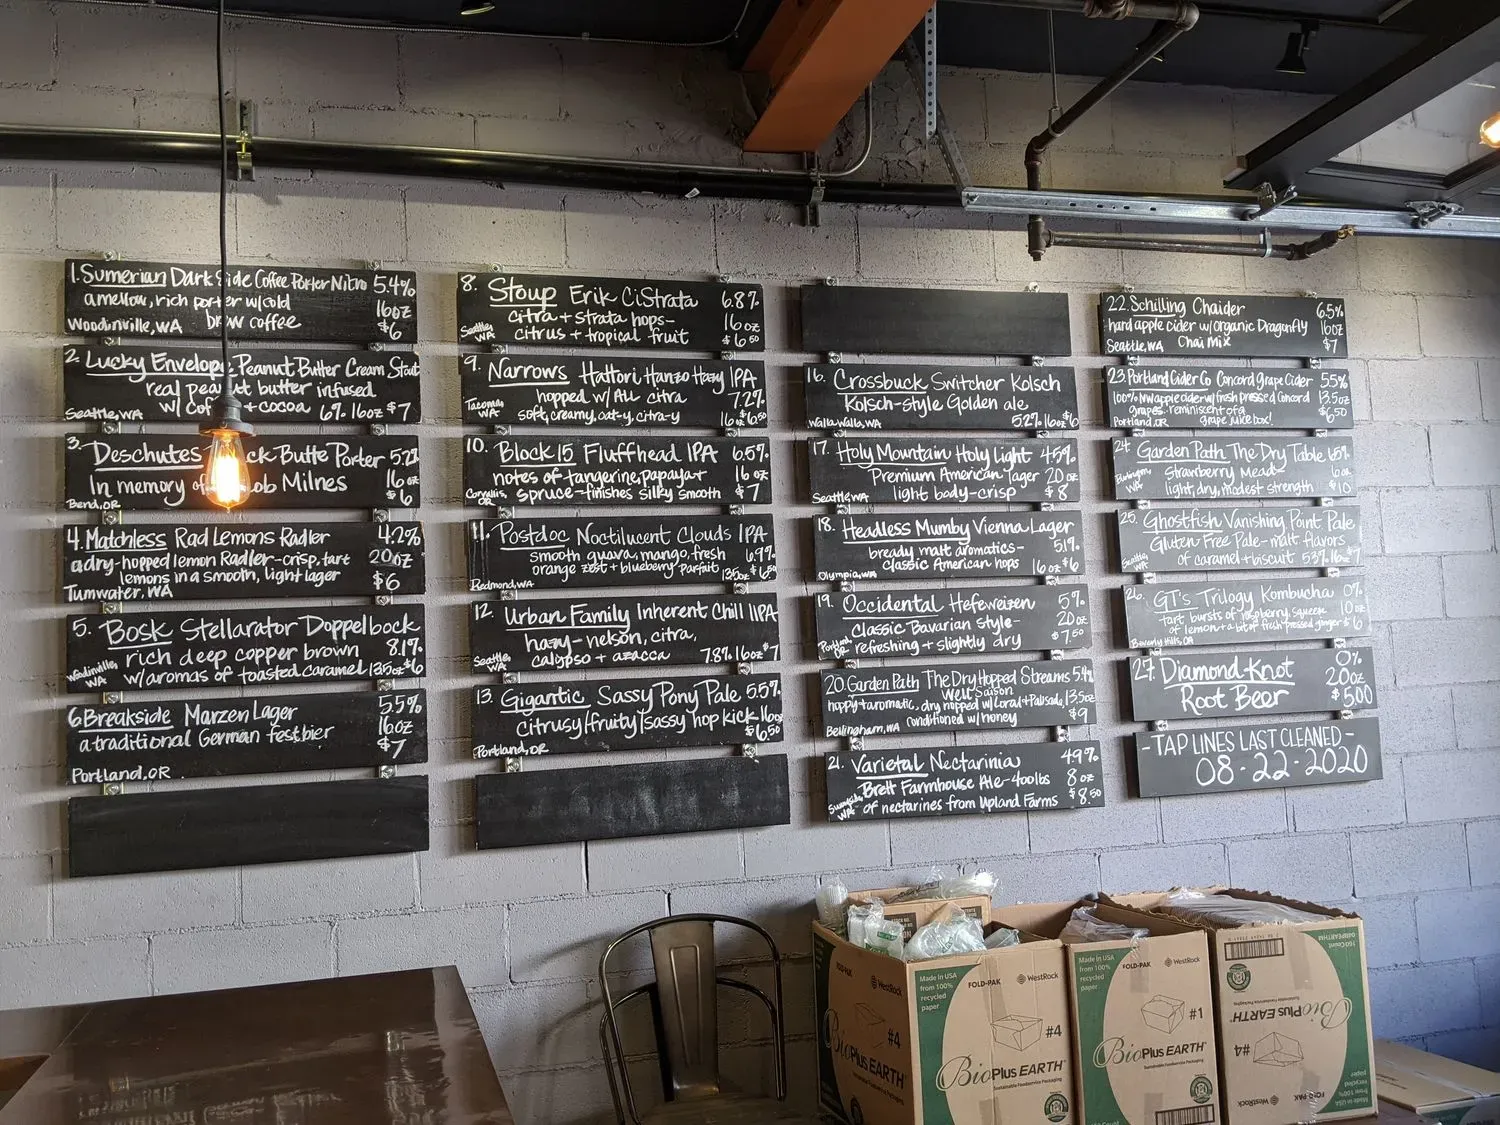 1. Sumerian Dark Side Coffee Porter Nitro 5.4%
a mellow, rich porter w/cold 16oz
Woodinville, WA brew coffee $6
2. Lucky Envelope Peanut Butter Cream Stout
real peanut butter infused
Seattle, WA w/ Coffee + cocoa 6% 16oz $7
3. Deschutes Black Butte Porter 5.2%
In memory of Milnes 16oz
Bend, OR $6
4. Matchless Rad Lemons Radler 4.2%
a dry-hopped lemon Radler-crisp, tart 20oz
lemons in a smooth, light lager $6
Tumwater, WA
5. Bosk Stellarator Doppelbock
rich deep copper brown 8.1%
Woodinville, WA w/aromas of toasted caramel 13.5oz $6
6. Breakside Marzen Lager 5.5%
a traditional German festbier 16oz
Portland, OR $7
8. Stoup Erik CiStrata 6.8%
citra + strata hops- 16oz
Seattle, WA citrus + tropical fruit $6.50
9. Narrows Hattori Hanzo Hazy IPA
hopped w/ALL citra 7.2%
Tacoma, WA soft, creamy, oat-y, citra-y 16oz $6.50
10. Block 15 Fluffhead IPA 6.5%
notes of tangerine, papaya + 16oz
Corvallis, OR spruce-finishes silky smooth $7
11. Postdoc Noctilucent Clouds IPA
smooth guava, mango, fresh 6.9%
orange zest + blueberry parfait 13.5oz $6.50
Redmond, WA
12. Urban Family Inherent Chill IIPA
hazy-nelson, citra,
Seattle, WA calypso + azacca 7.8% 16oz $7
13. Gigantic Sassy Pony Pale 5.5%
citrusy/fruity/sassy hop kick 16oz
Portland, OR $6.50
16. Crossbuck Switcher Kolsch
Kolsch-style Golden ale
Walla Walla, WA 5.2% 16oz $6
17. Holy Mountain Holy Light 4.5%
Premium American lager 20oz
Seattle, WA light body-crisp $8
18. Headless Mumby Vienna Lager
bready malt aromatics- 5.1%
Olympia, WA classic American hops 16oz $6
19. Occidental Hefeweizen 5%
classic Bavarian style- 20oz
Portland, OR refreshing + slightly dry $7.50
20. Garden Path The Dry Hopped Streams 5.4%
Well Saison
hoppy + aromatic, dry hopped w/Loral + Palisade, 13.5oz
Bellingham, WA conditioned w/honey $9
21. Varietal Nectarinia 4.9%
Brett Farmhouse Ale-400lbs 8oz
of nectarines from Upland Farms $8.50
22. Schilling Chaider 6.5%
hard apple cider w/organic Dragonfly 16oz
Seattle, WA Chai Mix $7
23. Portland Cider Co Concord Grape Cider 5.5%
100% NW apple cider w/fresh pressed Concord 13.5oz
grapes. reminiscent of a $6.50
Portland, OR grape juice box!
24. Garden Path The Dry Table 6.5%
Strawberry Mead- 6oz
Burlington, WA light, dry, modest strength $10
25. Ghostfish Vanishing Point Pale
Gluten-Free Pale-malt flavors
Seattle, WA of caramel + biscuit 5.3% 16oz $7
26. GT's Trilogy Kombucha 0%
tart bursts of raspberry, squeeze 10oz
of lemon + a bit of fresh pressed ginger $6
Beverly Hills, OR
27. Diamond Knot 0%
Root Beer 20oz
$5.00
-TAP LINES LAST CLEANED-
08-22-2020
Made in USA
from 100%
recycled
paper
FOLD-PAK
WestRock
#4
BioPlus EARTH
Sustainable Foodservice Packaging
FOLD-PAK
WestRock
#4
BioPlus EARTH
Made in USA
from 100%
recycled
paper
FOLD-PAK
WestRock
#1
BioPlus EARTH
Sustainable Foodservice Packaging
160 Count
BioPlus EARTH
#4
WestRock
FOLD-PAK